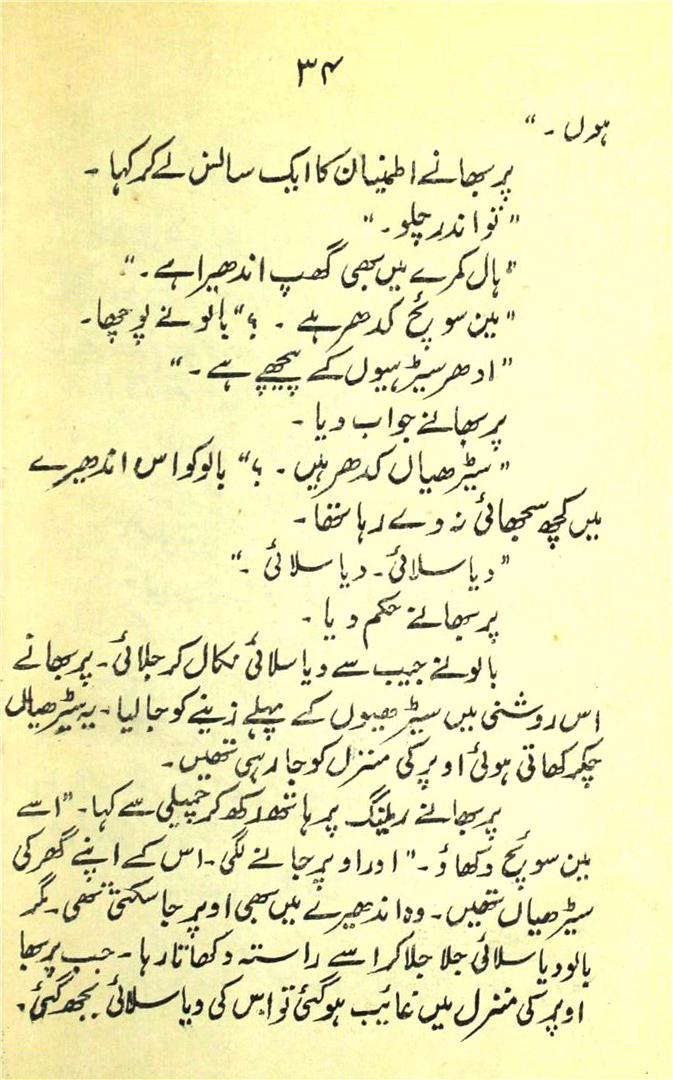 ۳۴
ہوں ۔ "
پربھا نے اطمینان کا ایک سانس لے کر کہا ۔
" تو اندر چلو ۔ "
" ہال کمرے میں بھی گھپ اندھیرا ہے ۔ "
" مین سوئچ کدھر ہے ۔ ؟ " بالو نے پوچھا ۔
" ادھر سیڑھیوں کے پیچھے ہے ۔ "
پربھا نے جواب دیا ۔
" سیڑھیاں کدھر ہیں ۔ ؟ " بالو کو اس اندھیرے
میں کچھ سجھائی نہ دے رہا تھا ۔
" دیا سلائی ۔ دیا سلائی ۔ "
پربھا نے حکم دیا ۔
بالو نے جیب سے دیا سلائی نکال کر جلائی ۔ پربھا نے
اس روشنی میں سیڑھیوں کے پہلے زینے کو جا لیا ۔ یہ سیڑھیاں
چکر کھاتی ہوئی اوپر کی منزل کو جا رہی تھیں ۔
پربھا نے ریلنگ پر ہاتھ رکھ کر چمپیلی سے کہا ۔ " اسے
مین سوئچ دکھاؤ ۔ " اور اوپر جانے لگی ۔ اس کے اپنے گھر کی
سیڑھیاں تھیں ۔ وہ اندھیرے میں بھی اوپر جا سکتی تھی ۔ مگر
بالو دیا سلائی جلا جلا کر اسے راستہ دکھاتا رہا ۔ جب پربھا
اوپر کی منزل میں غائب ہو گئی تو اس کی دیا سلائی بجھ گئی ۔